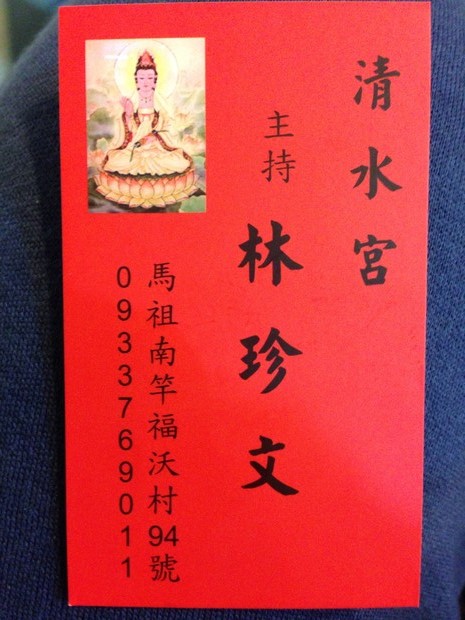 清水宮
主持
林珍文
馬祖南竿福沃村94號
0933769011